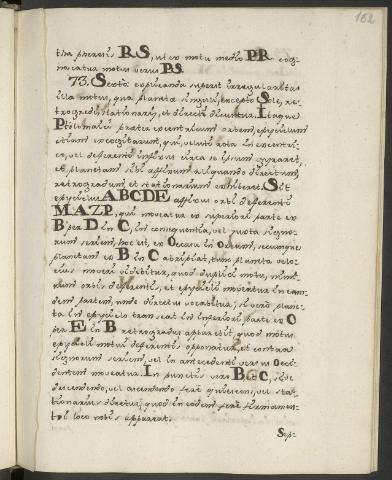 162
stha pheresis RS, ut ex motu medio PR cog-
noscatur motus verus PS.
73. Sexto explicanda superest irregularitas
illa motus, qua planetæ singuli, excepto Sole, re-
trogradi, stationarii, et directi dicuntur. Itaque
Ptolemaici præter excentricum orbem, epicyclum
etiam excogitarunt, qui, veluti rota in excentri-
co, vel deferente infixus circa se ipsum gyraret,
et planetam sibi affixum aliquando directum,
retrogradum, et stationarium exhiberet. Sit
epicyclus ABCDE affixus orbi deferenti
MAZP, qui moveatur ex superiori parte ex
B per D in C, in consequentia, vel juxta signo-
rum seriem, hoc est, ex Occasu in Ortum, secumque
planetam ex B in C abripiat, tum planeta velo-
cius moveri videbitur, quod duplici motu, nimi-
rum orbis deferentis, et epicycli moveatur in eam-
dem partem, unde directus vocabitur; si vero plane-
ta in epicyclo transeat in inferiori parte ex C
per E in B retrogradus apparebit, quod motus
epicycli motui deferentis opponatur, et contra
signorum seriem, vel in antecedentia versus Occi-
dentem moveatur. In punctis vero B et C, sive
descendendo, vel ascendendo fere quiescens, vel sta-
tionarius dicetur, quod in eodem fere firmamen-
ti loco nobis appareat.
Sep-